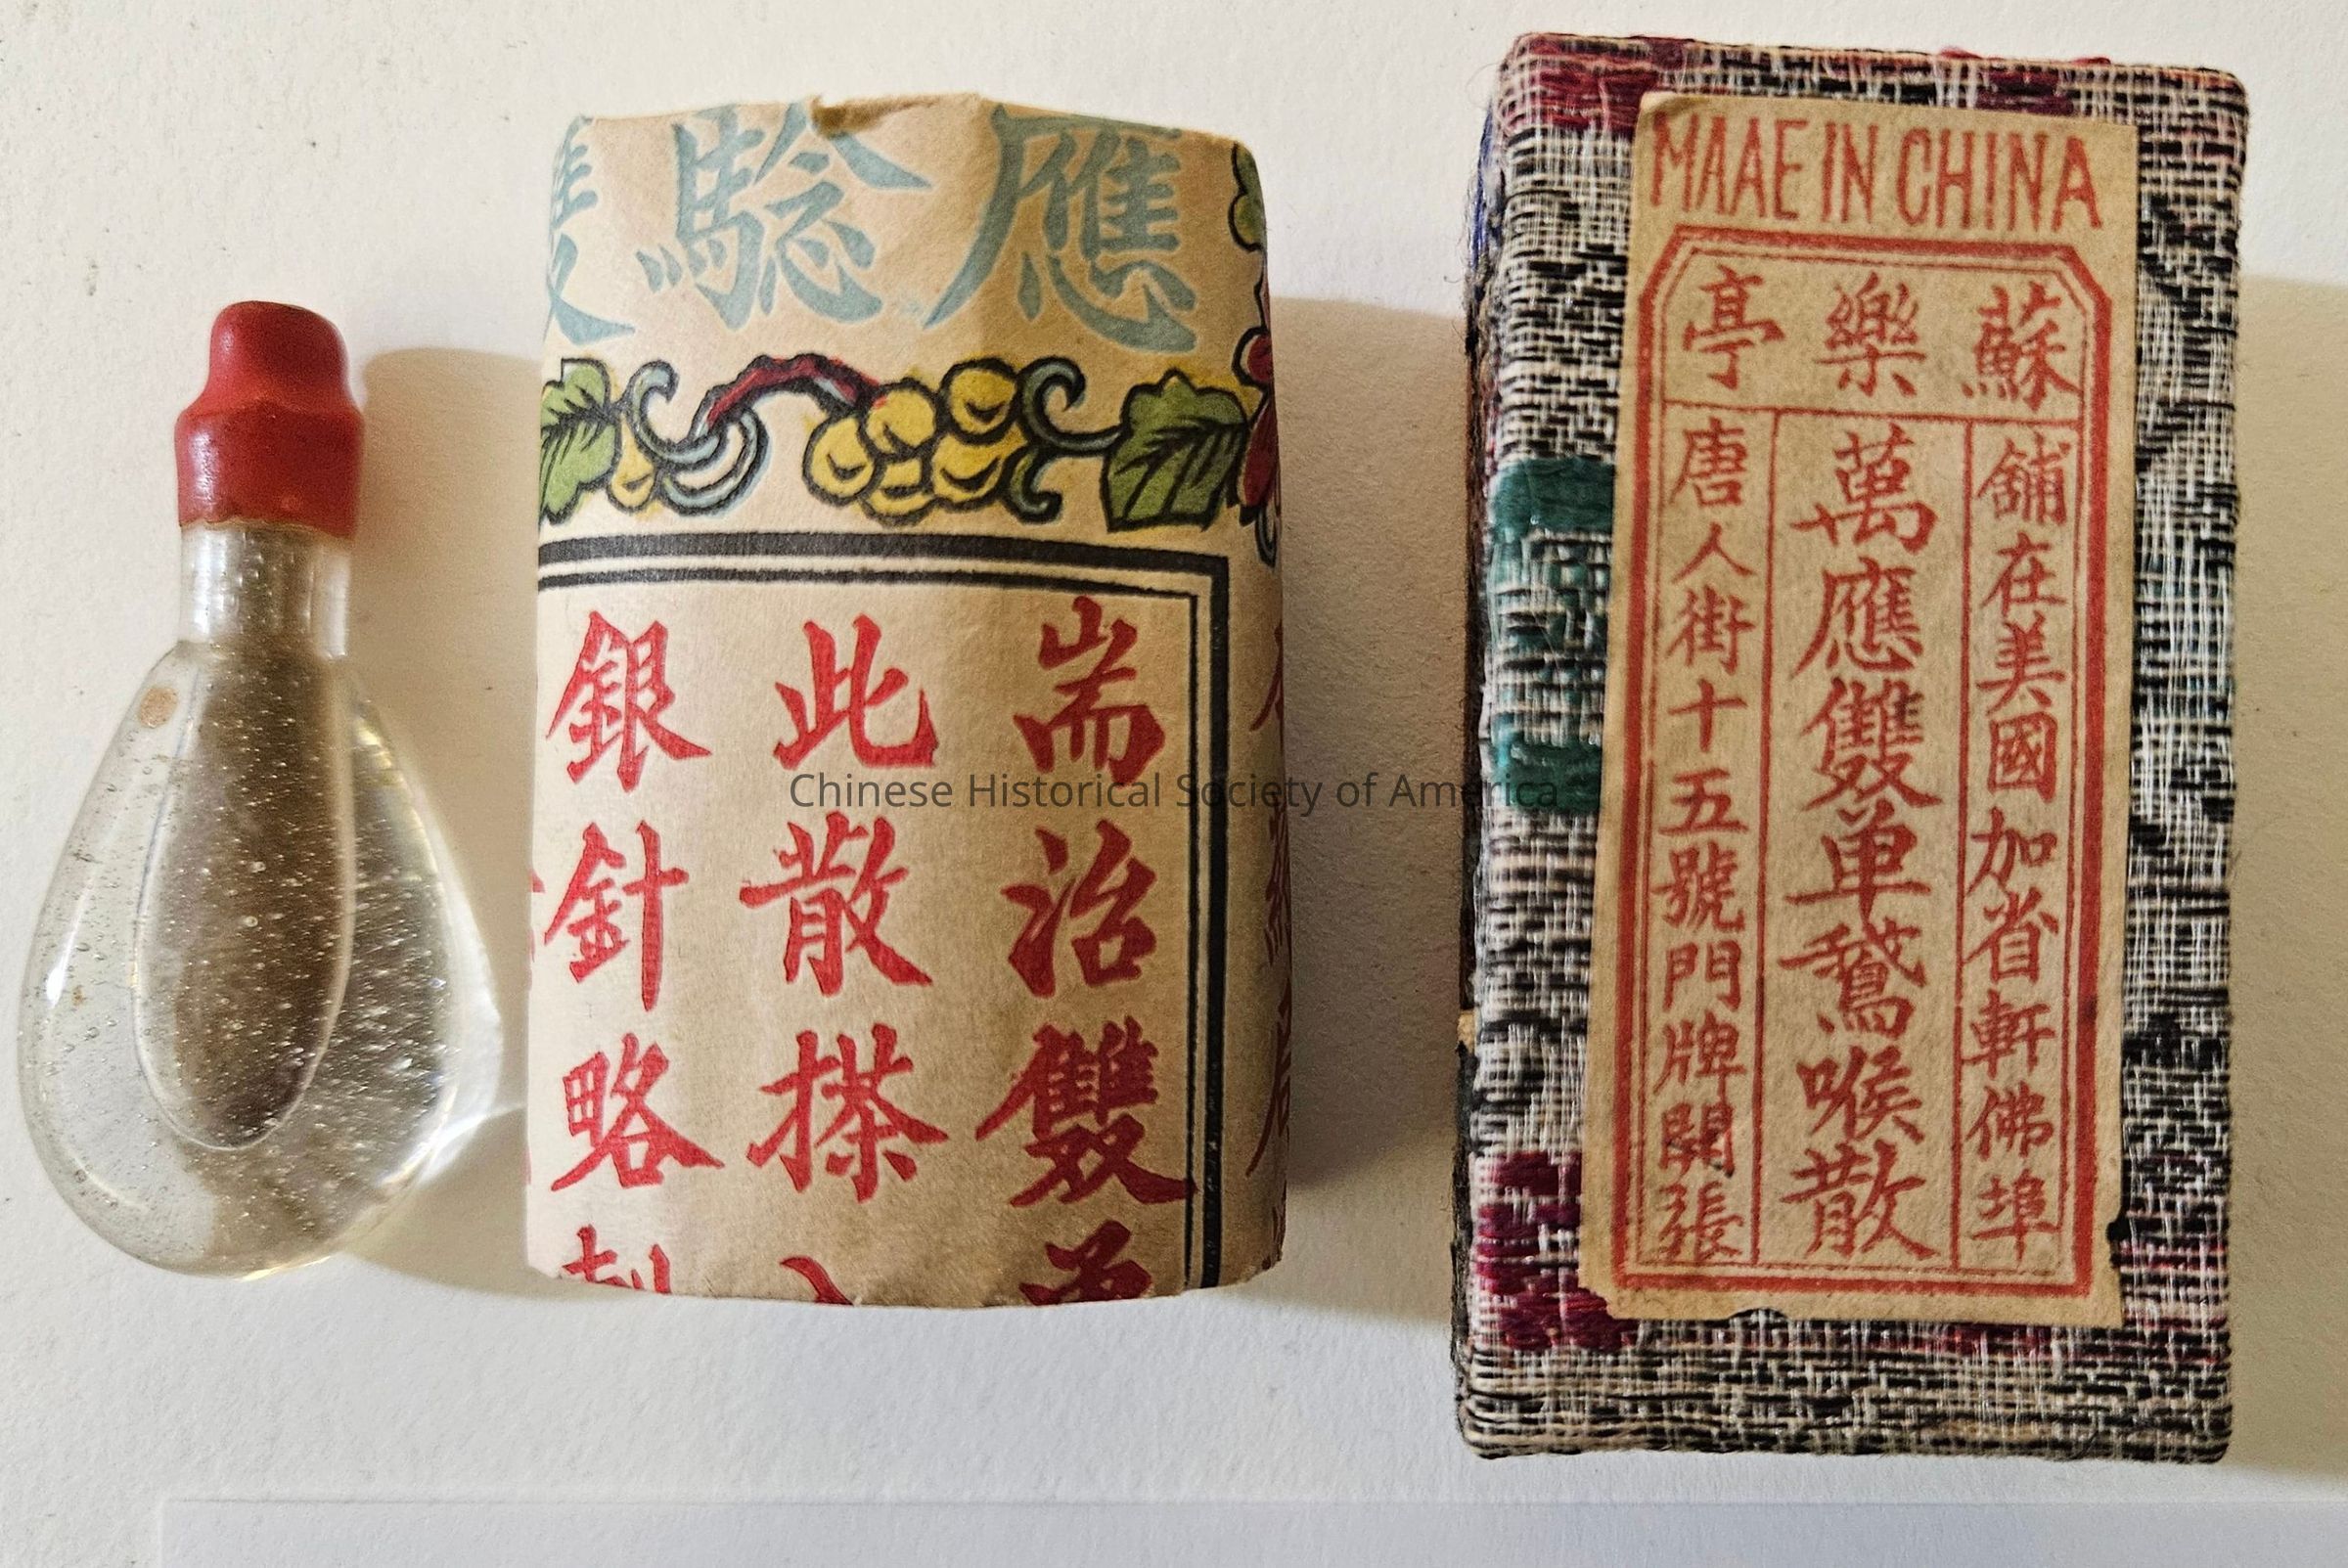 應騐雙
耑治雙
此散搽
銀針略
MAAE IN CHINA
蘇樂亭
舖在美國加省軒佛埠
萬應雙单鵞喉散
唐人街十五號門牌開張
Chinese Historical Society of America